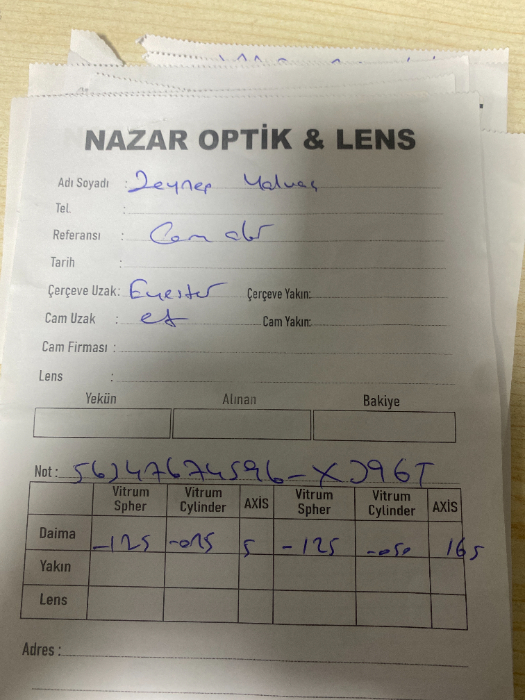 NAZAR OPTİK & LENS
Adı Soyadı : Zeynep Yalvaç
Tel. :
Referansı : Cam
Tarih :
Çerçeve Uzak: Çerçeve Yakın:
Cam Uzak : Cam Yakın:
Cam Firması :
Lens :
Yekün Alınan Bakiye
Not : 56347674596-XJ96T
Vitrum Spher Vitrum Cylinder AXİS Vitrum Spher Vitrum Cylinder AXİS
Daima -125 -025 5 -125 -050 165
Yakın
Lens
Adres :